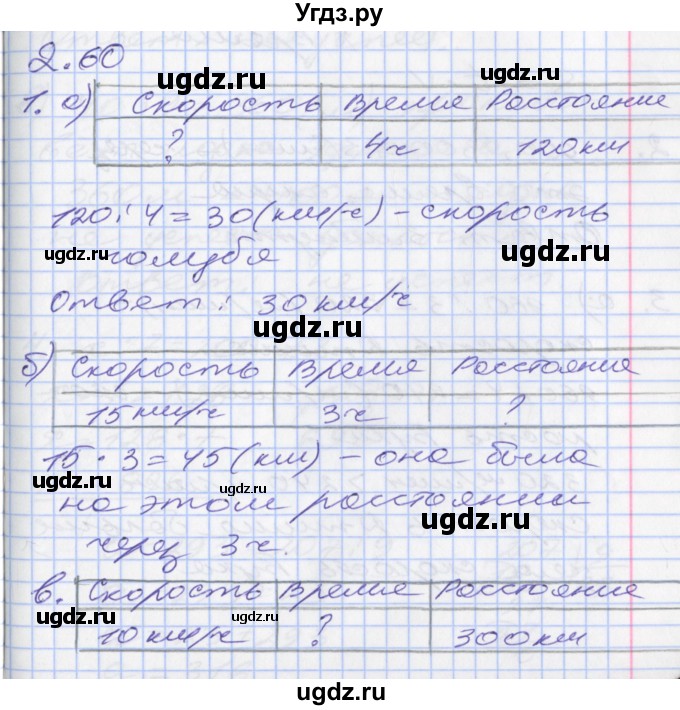 Угдз.ру
2.60
ugdz.ru
1. а) Скорость Время Расстояние
? 4ч 120км
ugdz.ru ugdz.ru
120:4=30(км/ч) - скорость
ugdz.ru голубя ugdz.ru
Ответ: 30км/ч
ugdz.ru
б) Скорость Время Расстояние
15км/ч 3ч ?
15·3=45(км) - она была
ugdz.ru ugdz.ru
на этом расстоянии
ugdz.ru
через 3ч.
в. Скорость Время Расстояние
ugdz.ru ugdz.ru
10км/ч ? 300км
ugdz.ru
ugdz.ru